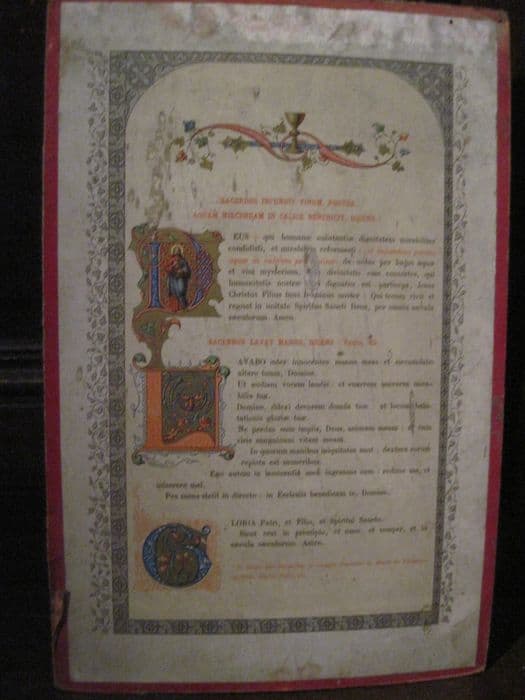 SACERDOS INFUNDIT VINUM, POSTEA
AQUAM MISCENDAM IN CALICE BENEDICIT, DICENS
DEUS qui humanæ substantiæ dignitatem mirabiliter
condidisti, et mirabilius reformasti
da nobis per hujus aquæ
et vini mysterium, divinitatis esse consortes, qui
humanitatis nostræ dignatus est particeps, Jesus
Christus Filius tuus Dominus noster : Qui tecum vivit et
regnat in unitate Spiritus Sancti Deus, per omnia sæcula
sæculorum. Amen.
SACERDOS LAVAT MANUS, DICENS
LAVABO inter innocentes manus meas et circumdabo
altare tuum, Domine.
Ut audiam vocem laudis et enarrem universa mira-
bilia tua.
Domine, dilexi decorem domus tuæ et locum habi-
tationis gloriæ tuæ.
Ne perdas cum impiis, Deus, animam meam : et cum
viris sanguinum vitam meam.
In quorum manibus iniquitates sunt : dextera eorum
repleta est muneribus.
Ego autem in innocentia mea ingressus sum : redime me, et
miserere mei.
Pes meus stetit in directo : in Ecclesiis benedicam te, Domine.
GLORIA Patri, et Filio, et Spiritui Sancto.
Sicut erat in principio, et nunc et semper, et in
sæcula sæculorum. Amen.